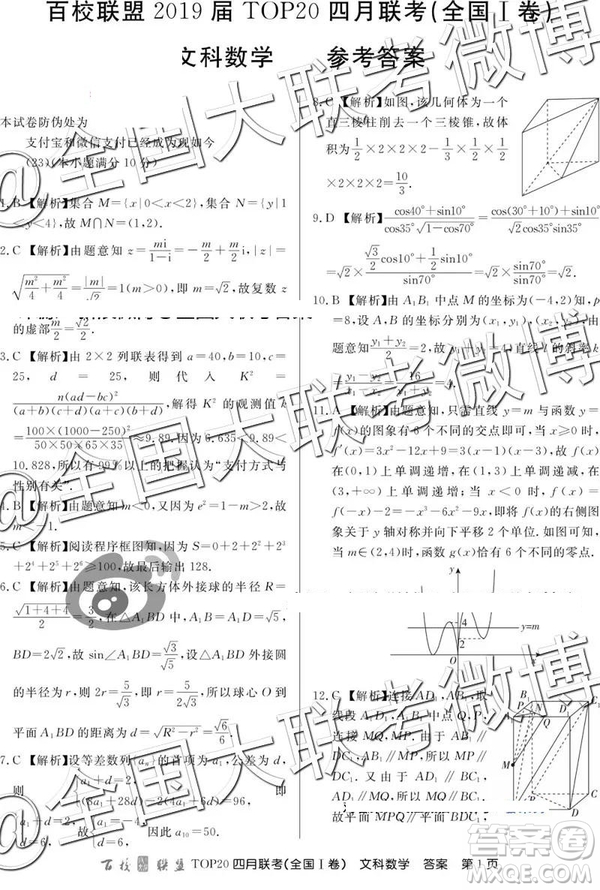 百校联盟 2019 届 TOP20 四月联考(全国Ⅰ卷)
文科数学 参考答案
本试卷防伪处为
支付宝和微信支付已经成为现如今
(23)(本小题满分 10 分)
1.B【解析】集合 M={x|0<x<2},集合 N={y|1
<y<4},故 M∩N=(1,2).
2.C【解析】由题意知 z=mi/(1-i)=-m/2+m/2 i,|z|=
√(m²/4+m²/4)=|m|/√2=1,即 m=√2,故复数 z
的虚部 m/2=√2/2.
3.C【解析】由 2×2 列联表得到 a=40,b=10,c=
25,d=25,则代入 K²=
n(ad-bc)²/((a+b)(c+d)(a+c)(b+d)),解得 K² 的观测值 k
=100×(1000-250)²/(50×50×65×35)≈9.89,因为 6.635<9.89<
10.828,所以有 99%以上的把握认为“支付方式与
性别有关”.
4.B【解析】由题意知 m<0,又因为 e²=1-m>2,故
m<-1.
5.C【解析】阅读程序框图知,因为 S=0+2+2²+2³
+2⁴+2⁵+2⁶≥100,故最后输出 128.
6.C【解析】由题意知,该长方体外接球的半径 R=
√(1+4+4)/2=3/2,在△A₁BD 中,A₁B=A₁D=√5,
BD=2√2,故 sin∠A₁BD=√3/√5,设△A₁BD 外接圆
的半径为 r,则 2r=√5/(√3/√5)=5/√3,所以球心 O 到
平面 A₁BD 的距离为 d=√(R²-r²)=√6/6.
7.C【解析】设等差数列{aₙ}的首项为 a₁,公差为 d,
则
a₁+d=6,
8a₁+28d-2(4a₁+6d)=96,
即
a₁=2,
d=6.
因此 a₁₀=50.
8.C【解析】如图,该几何体为一个
直三棱柱削去一个三棱锥,故体
积为 1/2×2×2×2-1/3×1/2×1/2
×2×2×2=10/3.
9.D【解析】(cos40°+sin10°)/(cos35°√(1-cos70°))=(cos(30°+10°)+sin10°)/(√2cos35°sin35°)
=√2×(√3/2 cos10°+1/2 sin10°)/(1/2 sin70°)=√2×sin70°/(1/2 sin70°)=2√2.
10.B【解析】由 A₁B₁ 中点 M 的坐标为(-4,2)知,p
=8,设 A,B 的坐标分别为(x₁,y₁),(x₂,y₂),由
题意知
11.A【解析】由题意知,只需直线 y=m 与函数 y=
f(x)的图象有 6 个不同的交点即可,当 x≥0 时,
f′(x)=3x²-12x+9=3(x-1)(x-3),故 f(x)
在(0,1)上单调递增,在(1,3)上单调递减,在
(3,+∞)上单调递增;当 x<0 时,f(x)=
f(-x)-2=-x³-6x²-9x,即 f(x)在 y 的右侧图
象关于 y 轴对称并向下平移 2 个单位.如图所示,
当 m∈(2,4)时,函数 g(x)恰有 6 个不同的零点.
y
4
y=m
2
12.C【解析】连接 AD₁,A₁D,AB₁,取
线段 A₁D₁
连接 MQ,
DC₁,AB₁∥DC₁,所以 MP∥
DC₁.又由于 AD₁∥BC₁,AD₁
故平面
百校联盟 TOP20 四月联考(全国Ⅰ卷) 文科数学 答案 第 1 页
@全国大联考微博
@全国大联考微博
@全国大联考微博